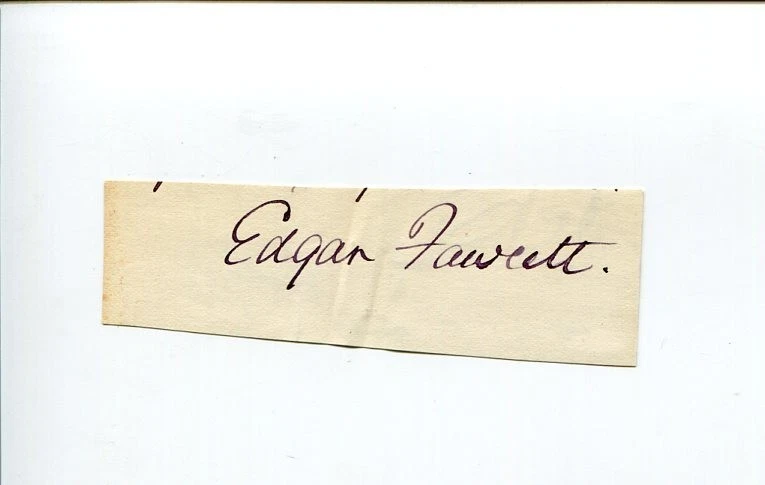 Edgar Fawcett.